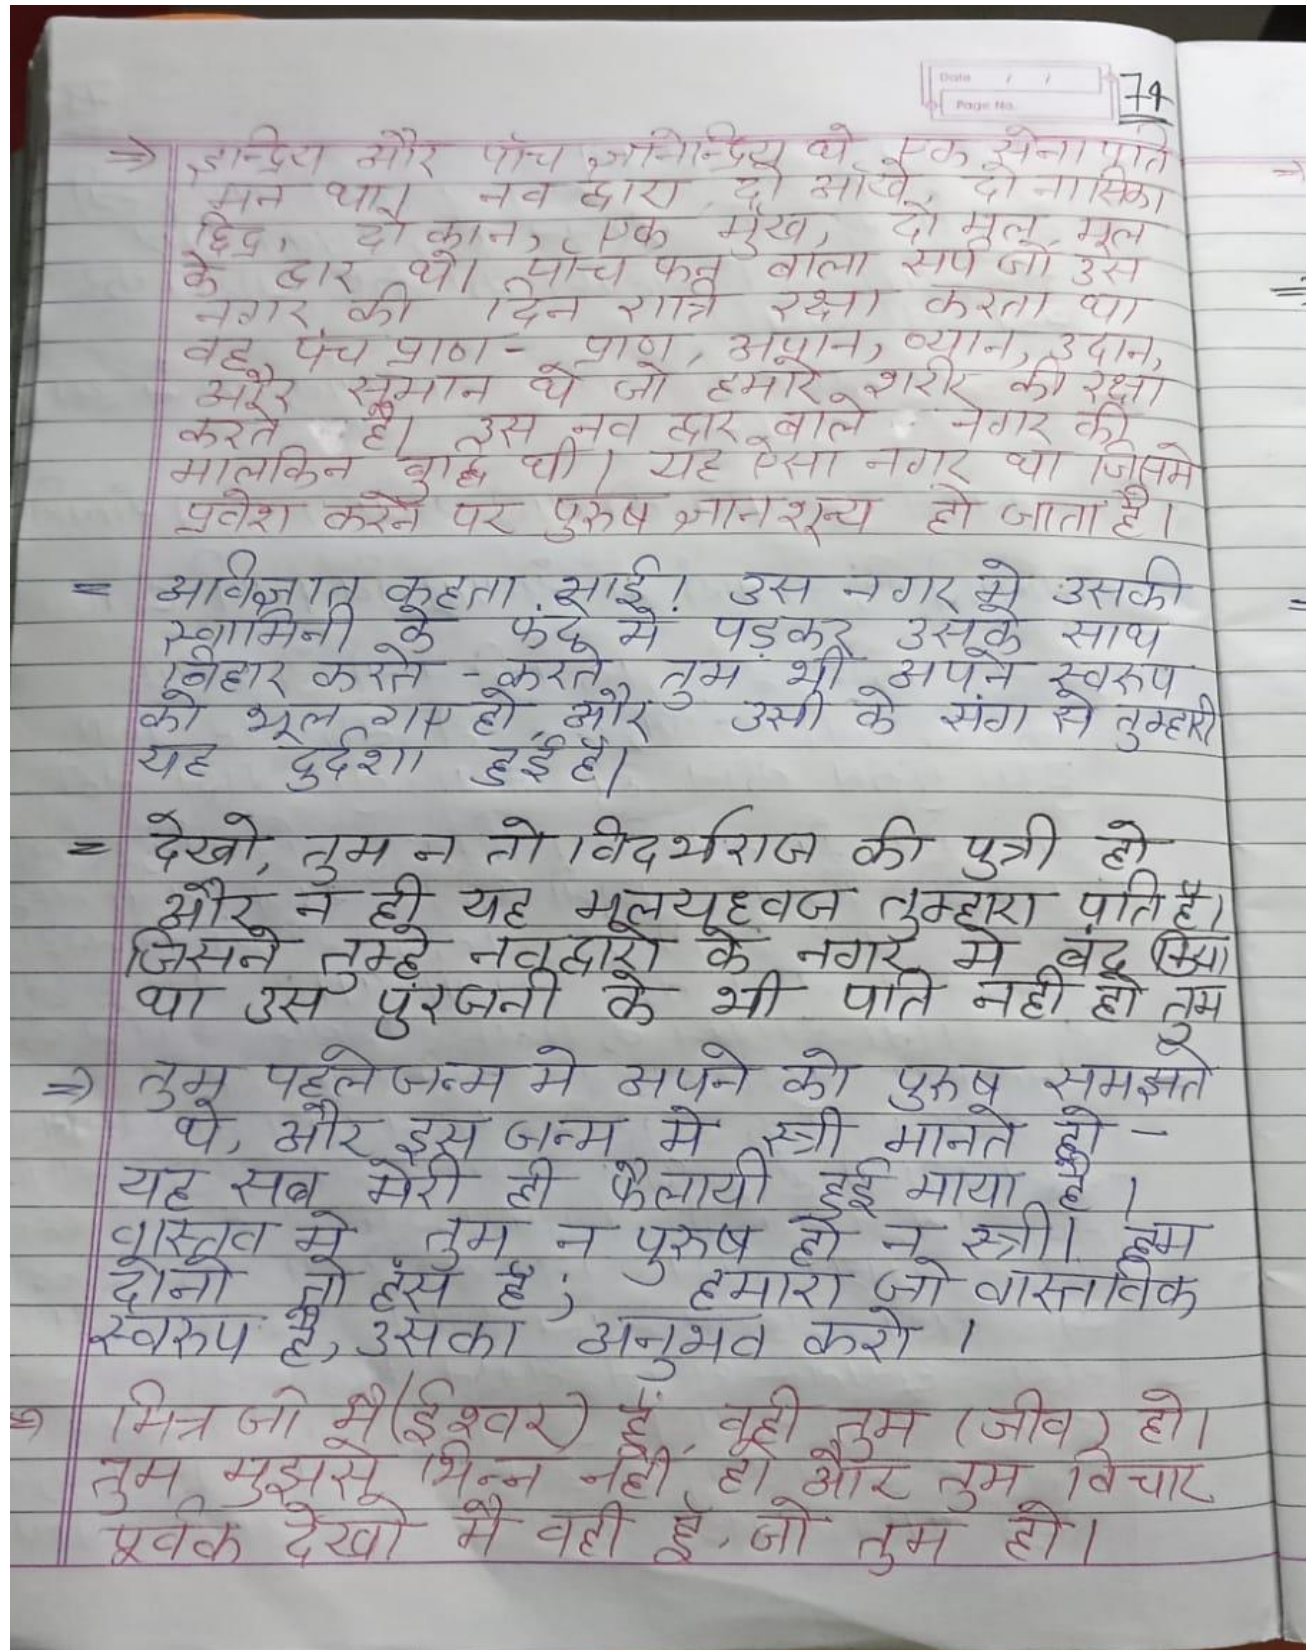 Date / /
Page No.
74
⇒ इन्द्रिय और पाँच ज्ञानेन्द्रिय थे, एक सेनापति
मन था। नव द्वारा दो आँखे, दो नासिका
छिद्र, दो कान, एक मुख, दो मुल मूल
के द्वार थे। पाँच फन वाला सर्प जो उस
नगर की दिन रात्रि रक्षा करता था
वह पंच प्राण - प्राण, अपान, व्यान, उदान,
और समान थे जो हमारे शरीर की रक्षा
करते है। उस नव द्वार वाले नगर की
मालकिन बुद्धि थी। यह ऐसा नगर था जिसमे
प्रवेश करने पर पुरुष ज्ञानशून्य हो जाता है।
= अविज्ञात कहता भाई! उस नगर मे उसकी
स्वामिनी के फंदे मे पड़कर उसके साथ
विहार करते - करते तुम भी अपने स्वरुप
को भूल गए हो, और उसी के संग से तुम्हारी
यह दुर्दशा हुई है।
= देखो, तुम न तो विदर्भराज की पुत्री हो
और न ही यह मूलयहवज तुम्हारा पति है।
जिसने तुम्हे नवद्वारो के नगर मे बंद किया
था उस पुंरजनी के भी पति नही हो तुम
⇒ तुम पहले जन्म मे अपने को पुरुष समझते
थे, और इस जन्म मे स्त्री मानते हो -
यह सब मेरी ही फैलायी हुई माया है।
वास्तव मे तुम न पुरुष हो न स्त्री। हम
दोनो तो हंस है; हमारा जो वास्तविक
स्वरुप है, उसका अनुभव करो।
⇒ मित्र जो मै (ईश्वर) हूँ, वही तुम (जीव) हो।
तुम मुझसे भिन्न नही हो और तुम विचार
पूर्वक देखो मै वही हूँ, जो तुम हो।